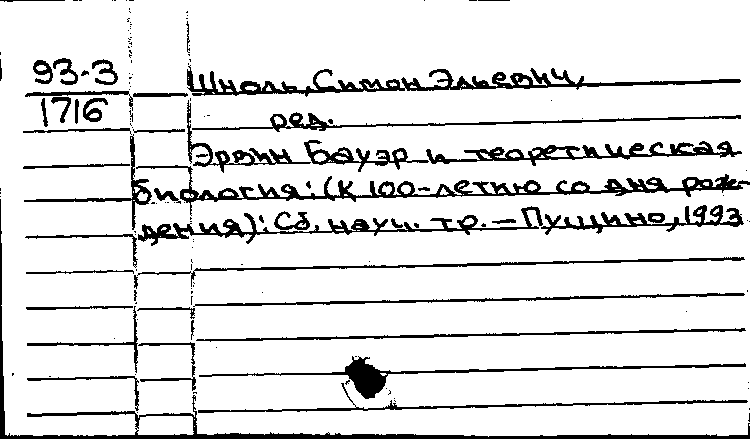 93-3
1716
Шноль, Симон Эльевич,
ред.
Эрвин Бауэр и теоретическая
биология: (К 100-летию со дня рож-
дения): Сб. науч. тр. — Пущино, 1993